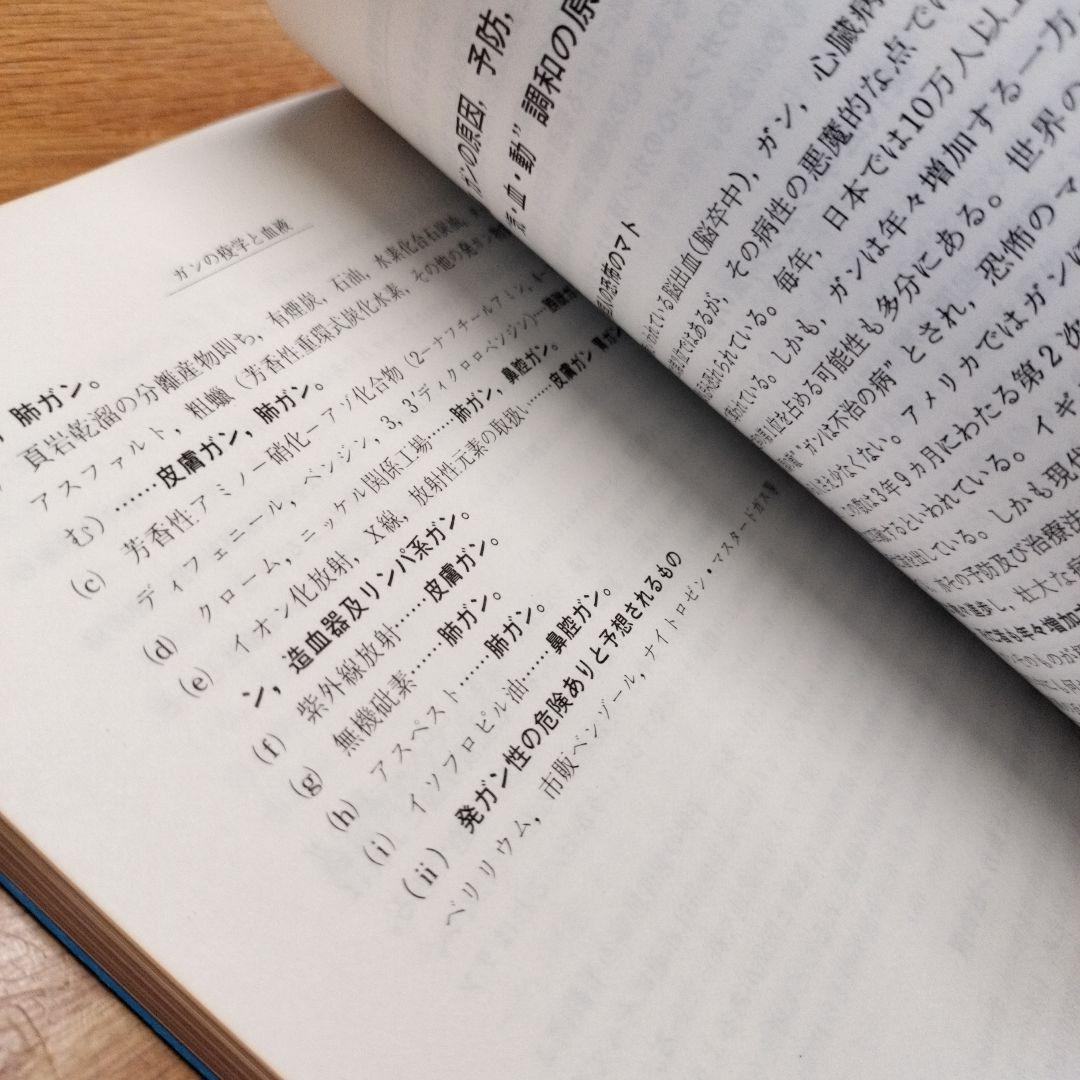 ガンの疫学と血液
肺ガン。
頁岩乾溜の分離産物即ち，有煙炭，石油，水素化合石炭油，
アスファルト，粗蠟（芳香性重環式炭化水素，その他の発ガン物
む）……皮膚ガン，肺ガン。
(c) 芳香性アミノー硝化ーアゾ化合物（2—ナフチールアミン，4—
ディフェニール，ベンジジン，3，3′ディクロロベンシジン)…膀胱
(d) クローム，ニッケル関係工場……肺ガン，鼻腔ガン。
(e) イオン化放射，X線，放射性元素の取扱い……皮膚ガン
ン，造血器及リンパ系ガン。
(f) 紫外線放射……皮膚ガン。
(g) 無機砒素……肺ガン。
(h) アスベスト……肺ガン。
(i) イソフロピル油……鼻腔ガン。
(ii) 発ガン性の危険ありと予想されるもの
ベリリウム，市販ベンゾール，ナイトロゼン・マスタードガス等
ガンの原因，予防，
血・動” 調和の原
の恐怖のマト
われている脳出血(脳卒中)，ガン，心臓病
位ではあるが，その病性の悪魔的な点では
恐れられている。毎年，日本では10万人以上
われている。しかも，ガンは年々増加する一方
位を占める可能性も多分にある。世界の
ガンは不治の病”とされ，恐怖のマ
少なくない。アメリカではガンに
の数は3年9ヵ月にわたる第2次
するといわれている。イギ
を出している。しかも現代
その予防及び治療法
進歩し，壮大な病
年々増加